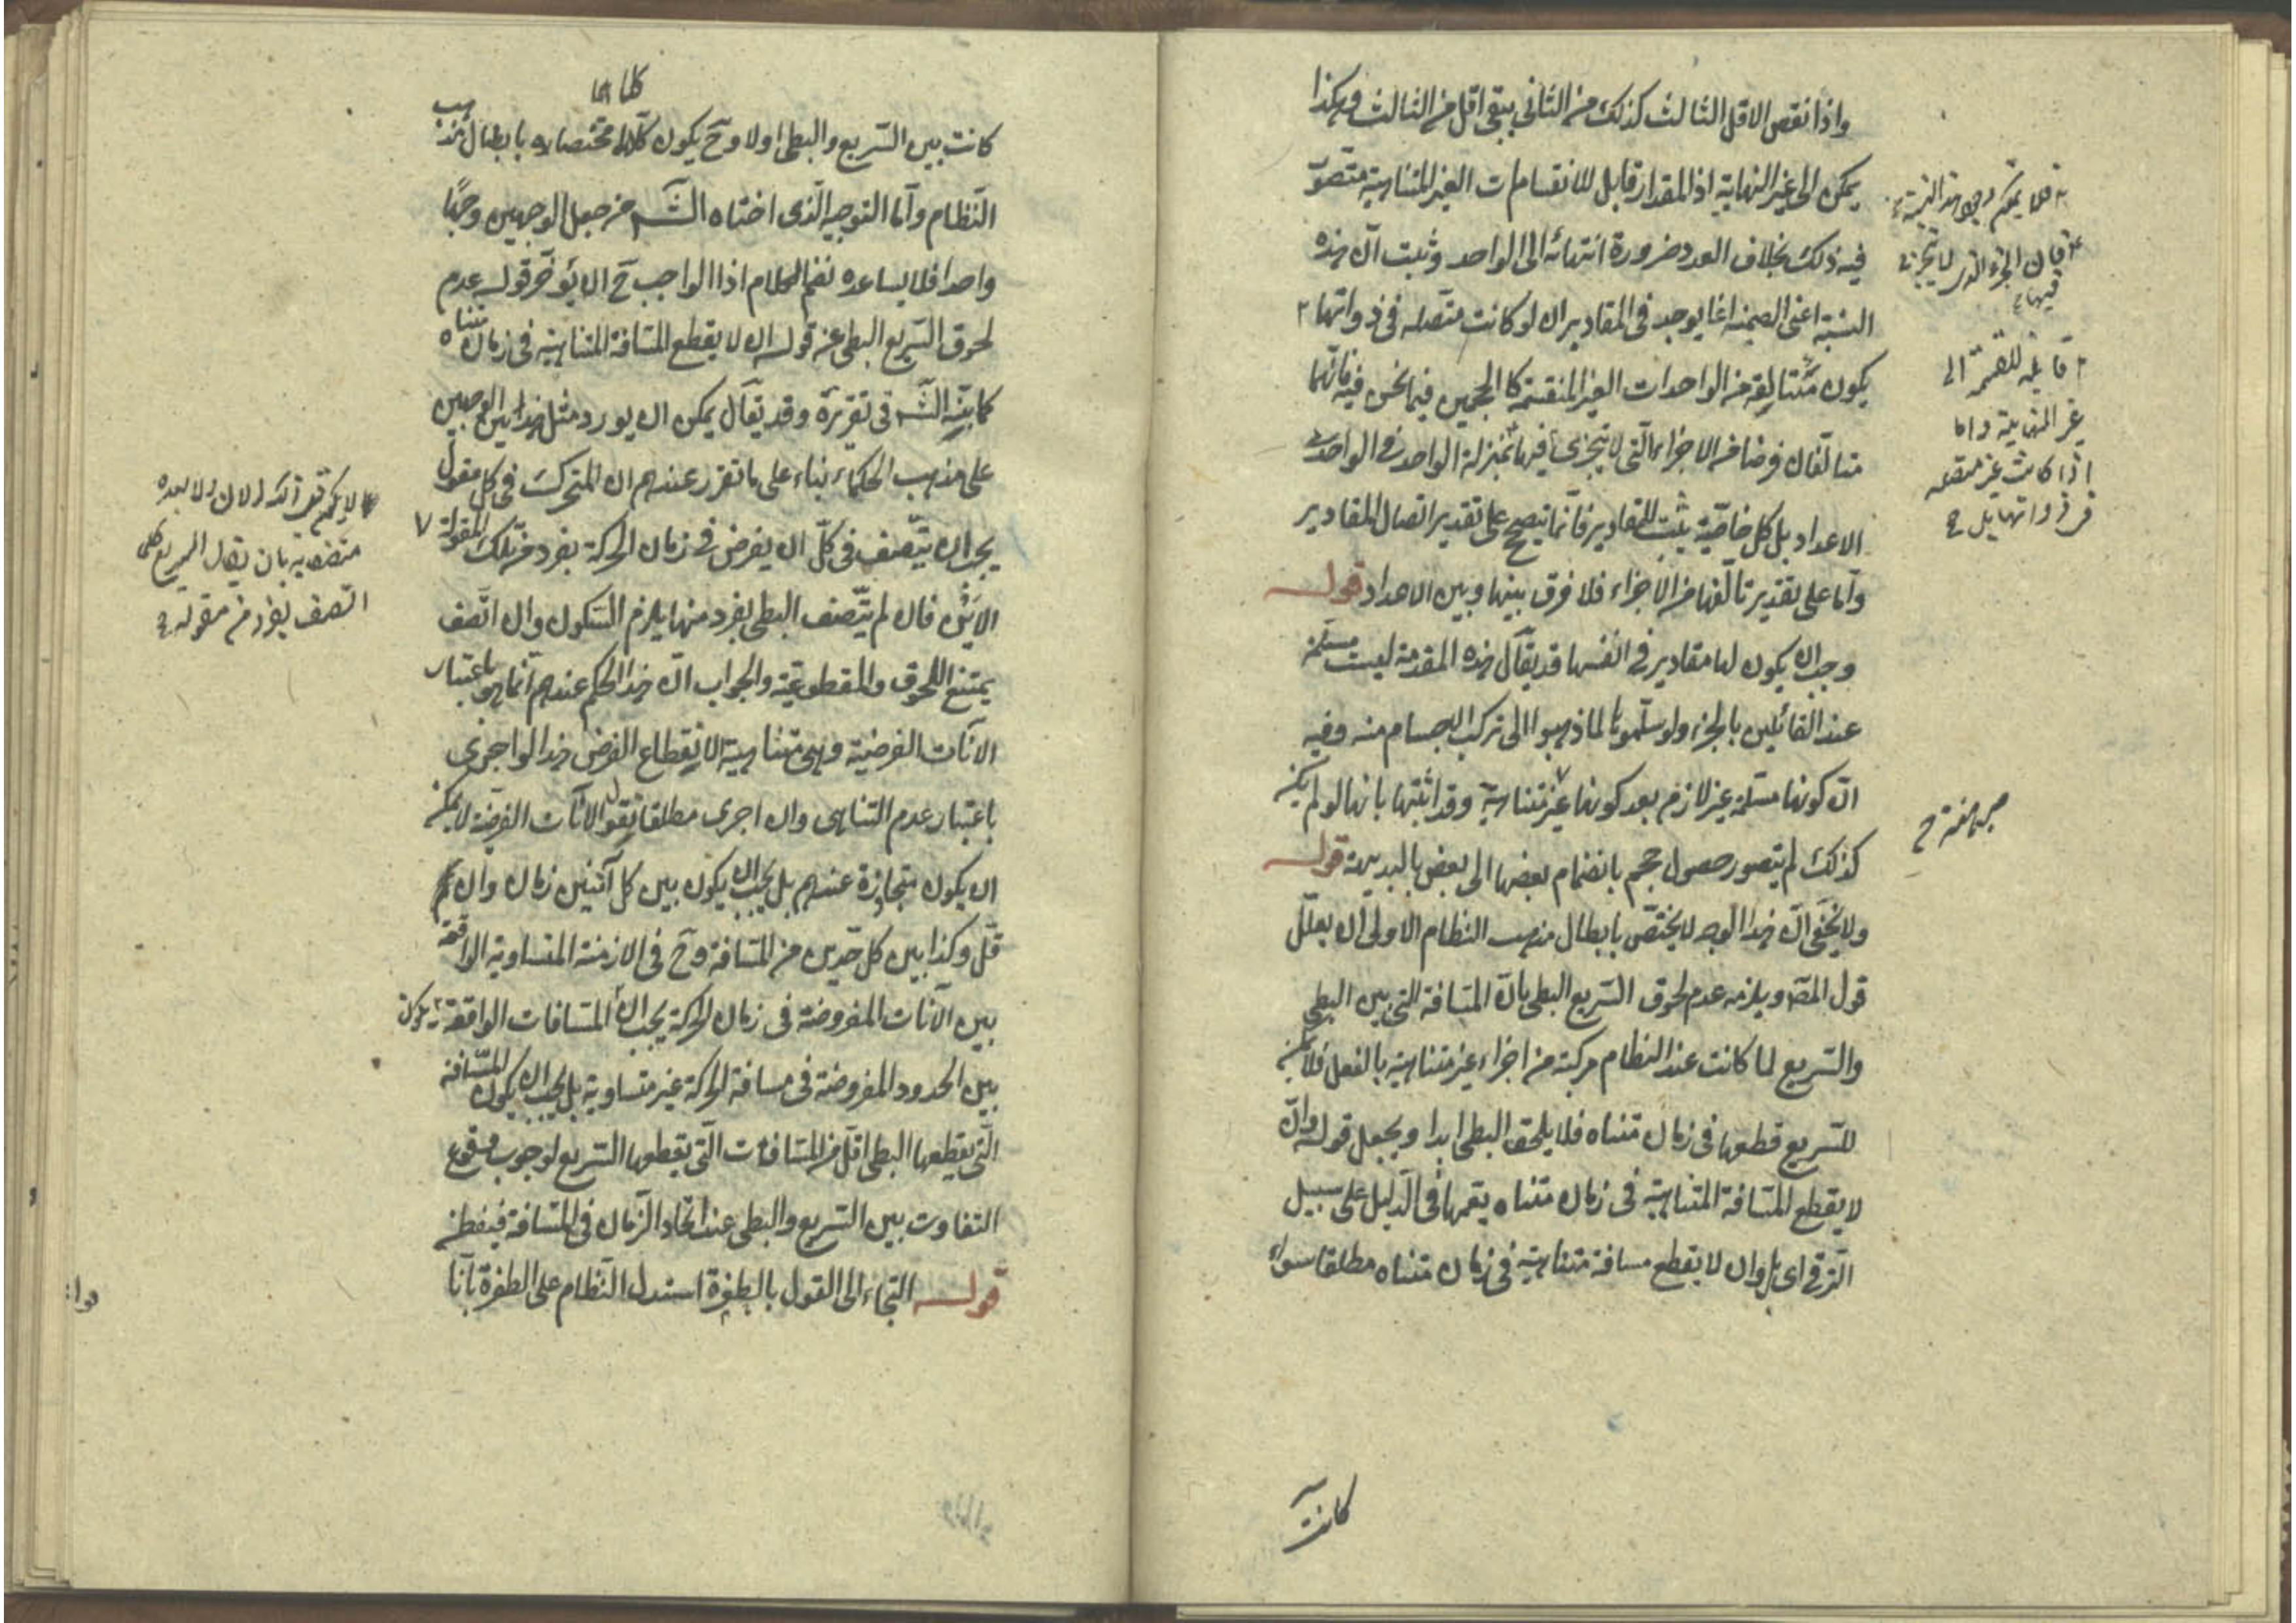 واذا نقص الاقل الثالث كذلك من الثانى يبقى اقل من الثالث وهكذا
يمكن الى غير النهاية اذ المقدار قابل للانقسامات الغير المتناهية متصور
فيه ذلك بخلاف العدد ضرورة انتهائه الى الواحد وثبت ان هذه
النسبة اعنى الصمية انما يوجد فى المقادير ان لو كانت متصلة فى ذواتها ٢
يكون متألفة من الواحدات الغير المنقسمة كالجسمين فيما نحن فيه فانهما
متألفان فرضا من الاجزاء التى لا تتجزى فيها بمنزلة الواحد فى الواحد
الاعداد بل كل خاصية يثبت للمقادير فانما تصح على تقدير اتصال المقادير
واما على تقدير تألفها من الاجزاء فلا فرق بينها وبين الاعداد قوله
وجب ان يكون لها مقادير فى انفسها قد يقال هذه المقدمة ليست مسلمة
عند القائلين بالجزء ولو سلموها لما ذهبوا الى تركب الاجسام منه وفيه
ان كونها مسلمة غير لازم بعد كونها غير متناهية وقد اثبتها بانها لو لم يكن
كذلك لم يتصور حصول حجم بانضمام بعضها الى بعض بالبديهة قوله
ولا يخفى ان هذا الوجه لا يختص بابطال مذهب النظام الاولى ان يعلل
قول المصـ ويلزمه عدم لحوق السريع البطى بان المسافة التى بين البطى
والسريع لما كانت عند النظام مركبة من اجزاء غير متناهية بالفعل فلا يمكن
للسريع قطعها فى زمان متناه فلا يلحق البطى ابدا ويجعل قوله وان
لا يقطع المسافة المتناهية فى زمان متناه يتمها فى الدليل على سبيل
الترقى اى بل وان لا يقطع مسافة متناهية فى زمان متناه مطلقا سواء
فان الجزء الذى لا يتجزى
فيها
٢ قابلة للقسمة الى
غير النهاية واما
اذا كانت غير متصلة
فى ذواتها بل
كانت
كلاهما
كانت بين السريع والبطى اولا وح يكون كلاما مختصا به بابطال مذهب
النظام واما التوجيه الذى اختاره الشـ من جعل الوجهين وجها
واحدا فلا يساعده نظم الكلام اذ الواجب ح ان يؤخر قوله عدم
لحوق السريع البطى عن قوله ان لا يقطع المسافة المتناهية فى زمان متناه
كما بينه الشـ فى تقريره وقد يقال يمكن ان يورد مثل هذين الوجهين
على مذهب الحكماء بناء على ما تقرر عندهم ان المتحرك فى كل مقولة
يجب ان يتصف فى كل ان يفرض فى زمان الحركة بفرد من تلك المقولة ٧
الاين فان لم يتصف البطى بفرد منها يلزم السكون وان اتصف
يمتنع اللحوق والمقطوعية والجواب ان هذا الحكم عندهم انما هو باعتبار
الانات الفرضية وهى متناهية لانقطاع الفرض هذا لو اجرى
باعتبار عدم التناهى وان اجرى مطلقا نقول الانات الفرضية لا يمكن
ان يكون متجاوزة عندهم بل يجب ان يكون بين كل آنين زمان وان
قل وكذا بين كل حدين من المسافة وح فى الازمنة المتساوية الواقعة
بين الآنات المفروضة فى زمان الحركة يجب ان المسافات الواقعة يكون
بين الحدود المفروضة فى مسافة الحركة غير متساوية بل يجب ان يكون المسافة
التى يقطعها البطى اقل من المسافات التى يقطعها السريع لوجوب وقوع
التفاوت بين السريع والبطى عند اتحاد الزمان فى المسافة فيقطن
قوله التجاء الى القول بالطفرة استدل النظام على الطفرة بانا
اتصف بفرد من مقولة